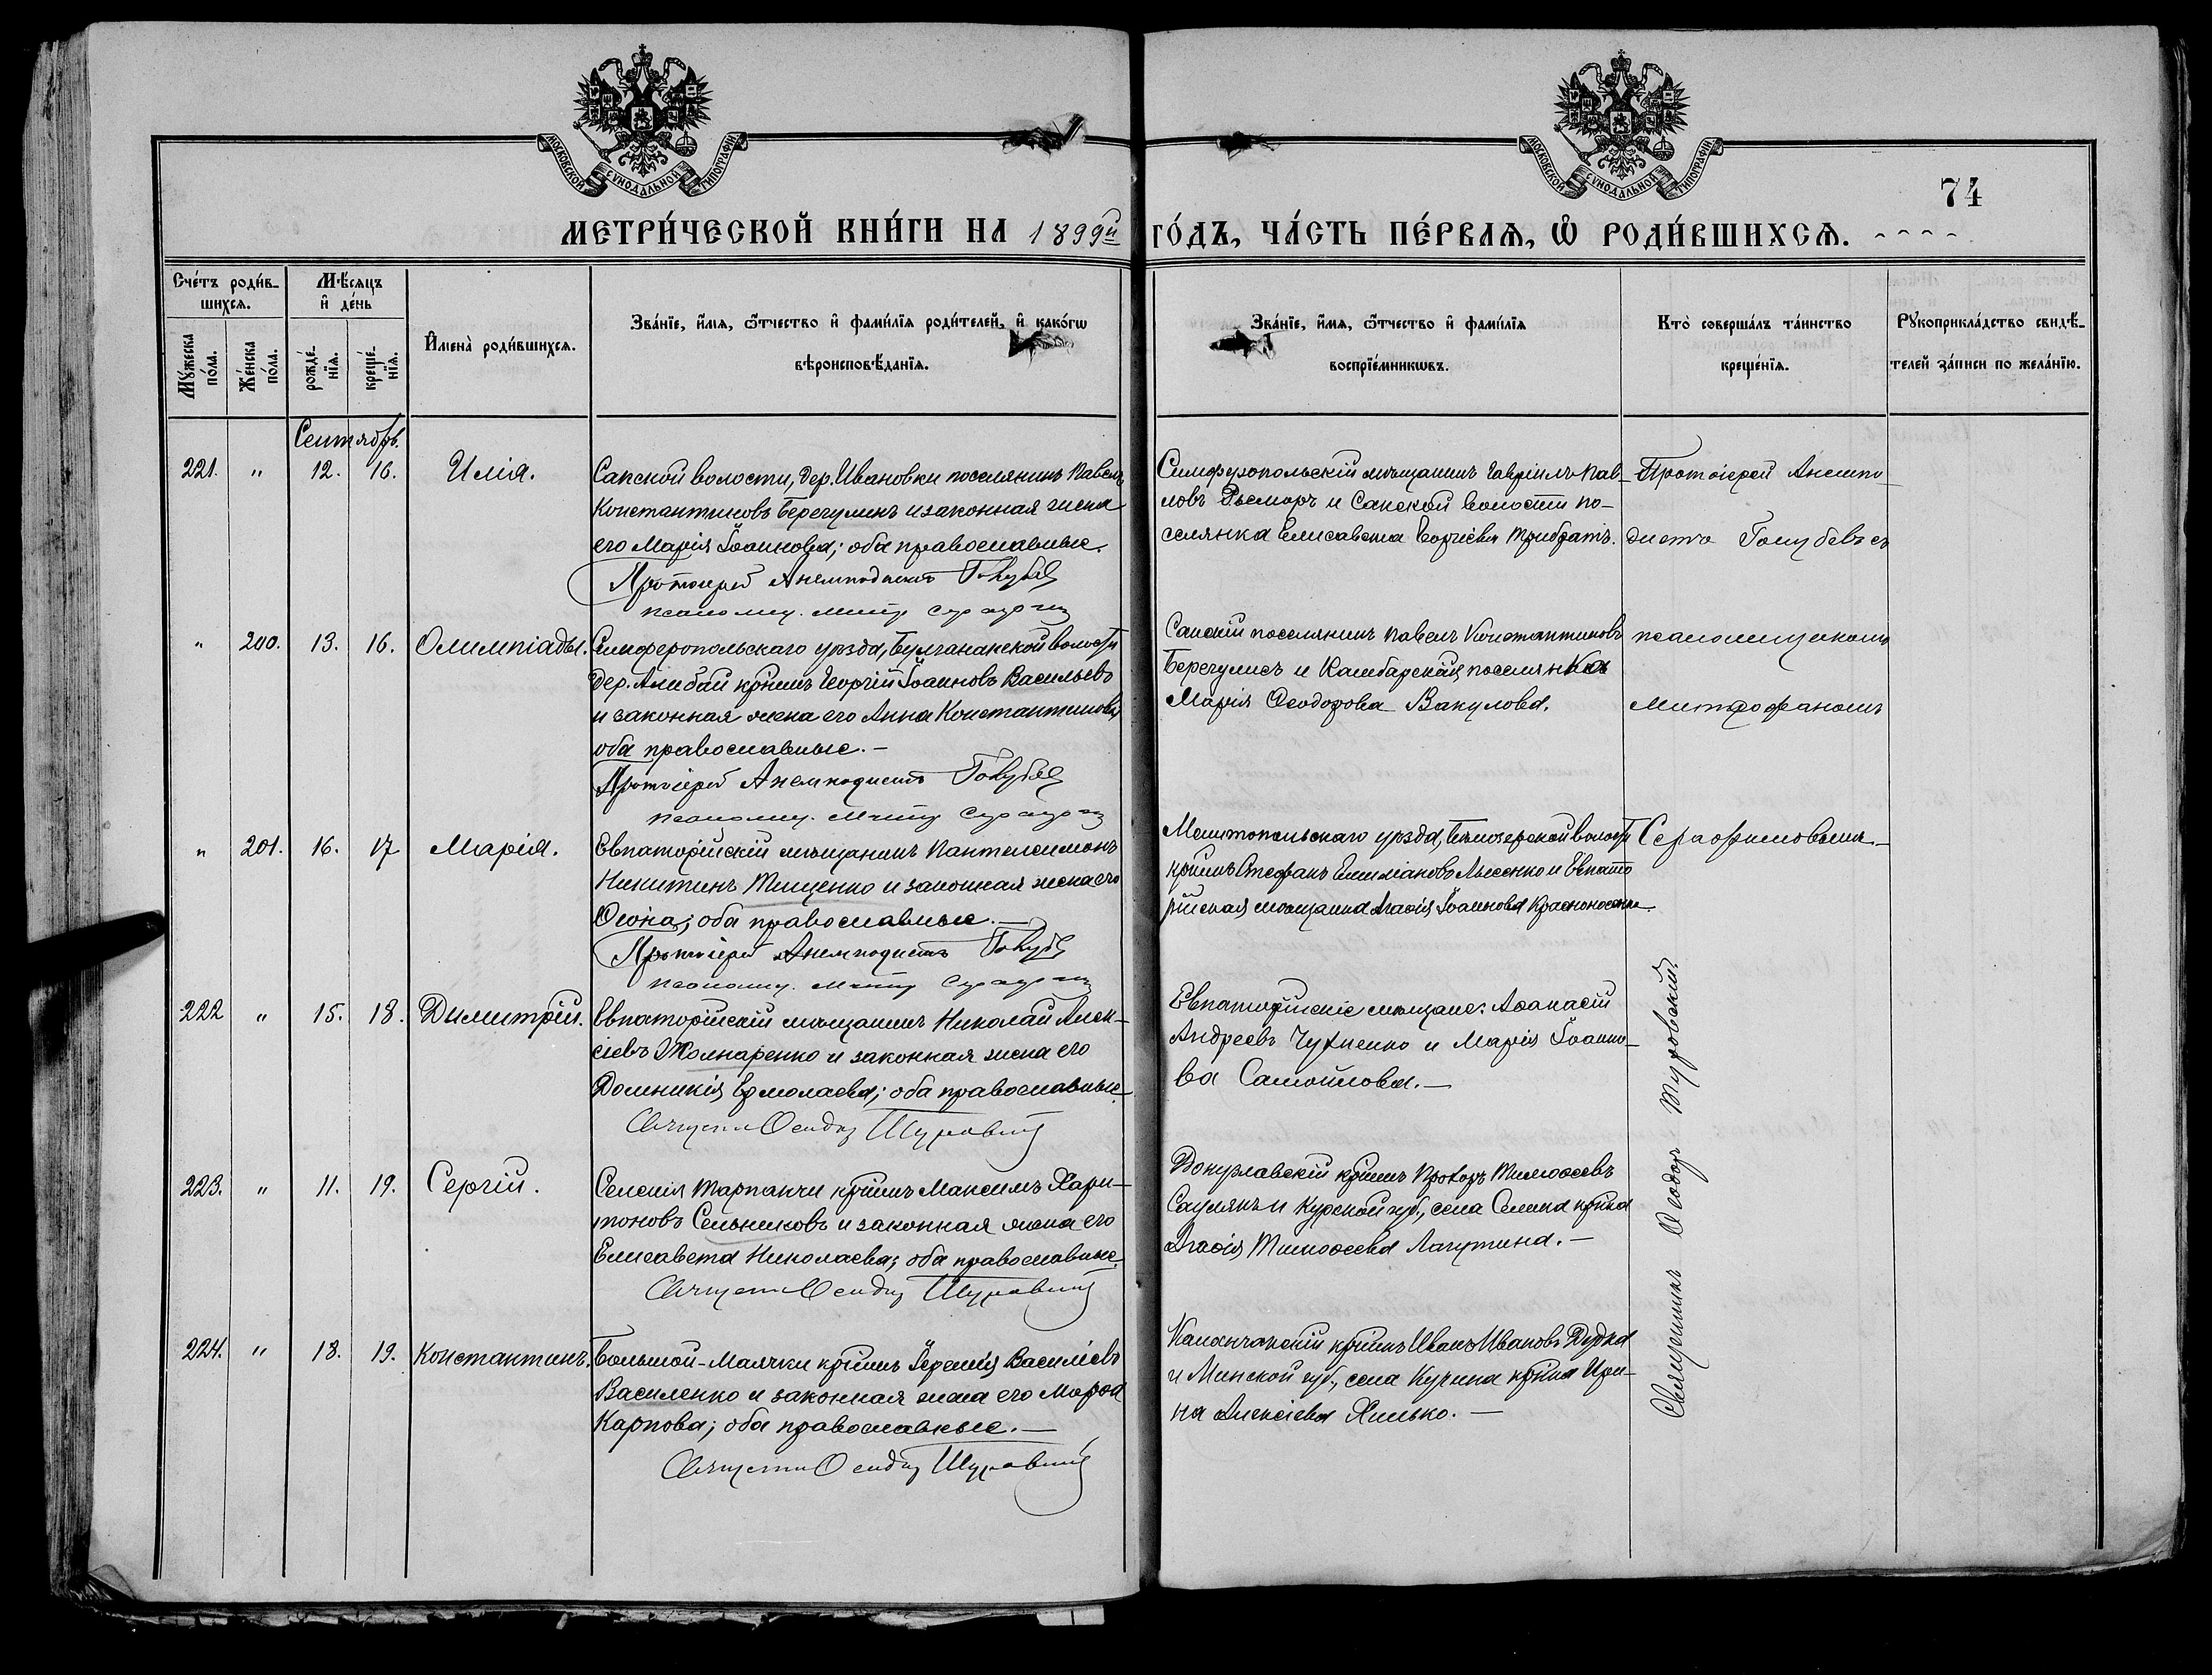 МОСКОВСКОЙ СѴНОДАЛЬНОЙ ТИПОГРАФІИ
МОСКОВСКОЙ СѴНОДАЛЬНОЙ ТИПОГРАФІИ
74
МЕТРИ́ЧЕСКОЙ КНИ́ГИ НА 1899й ГО́ДЪ, ЧА́СТЬ ПЕ́РВАѦ, Ѡ РОДИ́ВШИХСѦ.
Сче́тъ роди́в-
шихсѧ.
Мѣ́сѧцъ
и҆ де́нь
Мꙋ́жеска
по́ла.
Же́нска
по́ла.
рожде́-
нїѧ.
креще́-
нїѧ.
И҆мена̀ роди́вшихсѧ.
Зва́нїе, и҆́мѧ, ѻ҆́тчество и҆ фами́лїѧ роди́телей, и҆ како́гѡ
вѣроисповѣ́данїѧ.
Зва́нїе, и҆́мѧ, ѻ҆́тчество и҆ фами́лїѧ
воспрїе́мникѡвъ.
Кто̀ соверша́лъ та́инство
креще́нїѧ.
Рꙋкоприкла́дство свидѣ́-
телей за́писи по жела́нїю.
Сентябрь.
221. " 12. 16. Илія.
Сакской волости, дер. Ивановки поселянинъ Павелъ
Константиновъ Берегулинъ и законная жена
его Марія Іоаннова; оба православные.
Протоіерей Анемподистъ Голубевъ
псаломщ. Митр
Симферопольскій мѣщанинъ Гавріилъ Пав-
ловъ и Сакской волости по-
селянка Елисавета Георгіева Трибратъ.
Протоіерей Анемпо-
дистъ Голубевъ съ
" 200. 13. 16. Олимпіады.
Симферопольскаго уѣзда, Булганакской волости
дер. Алибай кр̃нинъ Георгій Іоанновъ Васильевъ
и законная жена его Анна Константинова
оба православные.-
Протоіерей Анемподистъ Голубевъ
псаломщ. Митр
Сакскій поселянинъ Павелъ Константиновъ
и поселянка
Марія Ѳеодорова Вакулова.
псаломщикомъ
Митрофаномъ
" 201. 16. 17 Марія.
Евпаторійскій мѣщанинъ Пантелеимонъ
Никитинъ Тищенко и законная жена его
; оба православные.-
Протоіерей Анемподистъ Голубевъ
псаломщ. Митр
Мелитопольскаго уѣзда, Бѣлозерской волости
кр̃нинъ Стефанъ Емиліановъ Лысенко и Евпато
рійская мѣщанка Агаѳія Іоаннова
Серафимовымъ.-
222 " 15. 18. Димитрій.
Евпаторійскій мѣщанинъ Николай Алек-
сіевъ Жолнаренко и законная жена его
Домникія Ермолаева; оба православные
Священн. Ѳеодоръ Шуровскій
Евпаторійскіе мѣщане: Аѳанасій
Андреевъ и Марія Іоанно-
ва Самойлова.-
223. " 11. 19. Сергій.
Селенія Тарпанчи кр̃нинъ Максимъ Хари-
тоновъ Сельниковъ и законная жена его
Елисавета Николаева; оба православные.
Священн. Ѳеодоръ Шуровскій
Донузлавскій кр̃нинъ Прохоръ Тимоѳеевъ
и Курской губ., села кр̃нка
Агаѳія Тимоѳеева Лагутина.-
224. " 18. 19. Константинъ.
Большой-Маячки кр̃нинъ Іеремія Василіевъ
Василенко и законная жена его Марѳа
Карпова; оба православные.-
Священн. Ѳеодоръ Шуровскій
Каланчакскій кр̃нинъ Иванъ Ивановъ Дудка
и Минской губ., села Кучина кр̃нка Ири-
на Алексіева Хилько.-
Священникъ Ѳеодоръ Шуровскій.